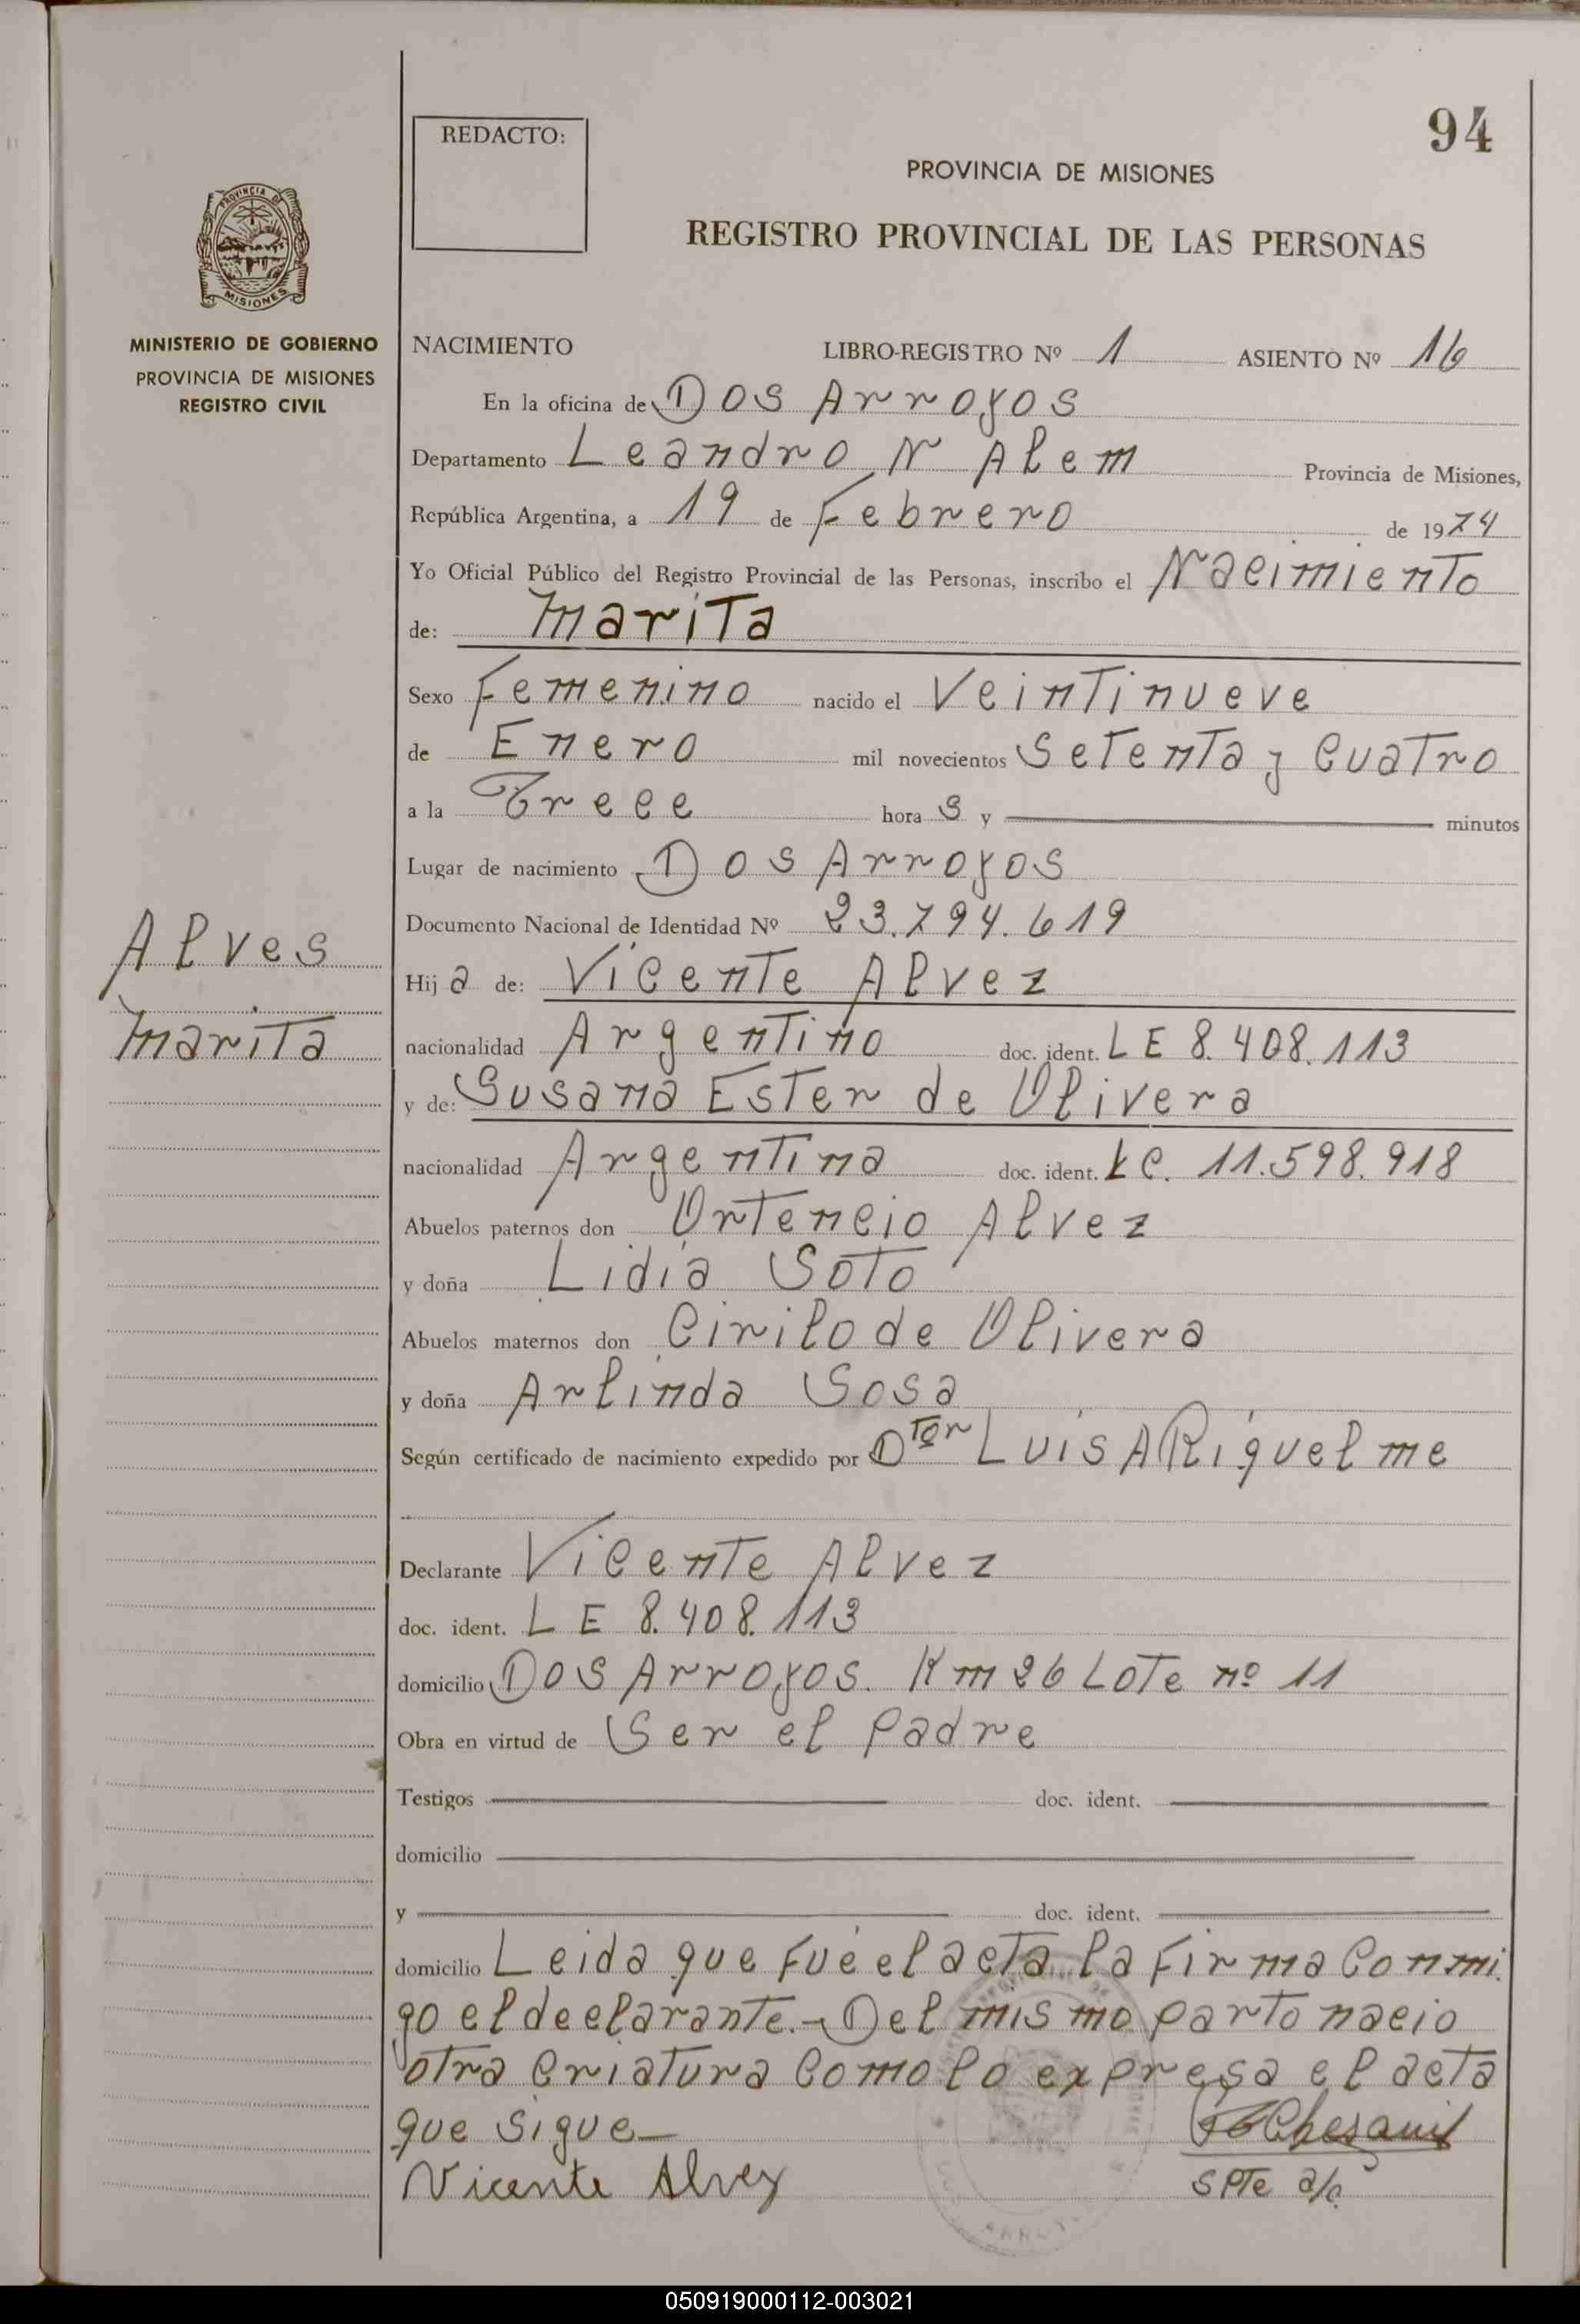 94
REDACTO:
PROVINCIA DE MISIONES
REGISTRO PROVINCIAL DE LAS PERSONAS
PROVINCIA DE
MISIONES
MINISTERIO DE GOBIERNO
PROVINCIA DE MISIONES
REGISTRO CIVIL
NACIMIENTO LIBRO-REGISTRO Nº 1 ASIENTO Nº 16
En la oficina de Dos Arroyos
Departamento Leandro N Alem Provincia de Misiones,
República Argentina, a 19 de Febrero de 1974
Yo Oficial Público del Registro Provincial de las Personas, inscribo el Nacimiento
de: Marita
Sexo Femenino nacido el Veintinueve
de Enero mil novecientos Setenta y Cuatro
a la Trece hora s y minutos
Lugar de nacimiento Dos Arroyos
Documento Nacional de Identidad Nº 23.794.619
Alves
Marita
Hij a de: Vicente Alvez
nacionalidad Argentino doc. ident. LE 8.408.113
y de: Susana Ester de Olivera
nacionalidad Argentina doc. ident. LC. 11.598.918
Abuelos paternos don Ortencio Alvez
y doña Lidia Soto
Abuelos maternos don Cirilo de Olivera
y doña Arlinda Sosa
Según certificado de nacimiento expedido por Dtor Luis A Riquelme
Declarante Vicente Alvez
doc. ident. LE 8.408.113
domicilio Dos Arroyos. Km 26 Lote nº 11
Obra en virtud de Ser el padre
Testigos doc. ident.
domicilio
y doc. ident.
domicilio Leida que fué el acta la firma Conmi
go el declarante.- Del mismo parto nacio
otra Criatura Como lo expresa el acta
que sigue_
Vicente Alvez Spte a/c
050919000112-003021